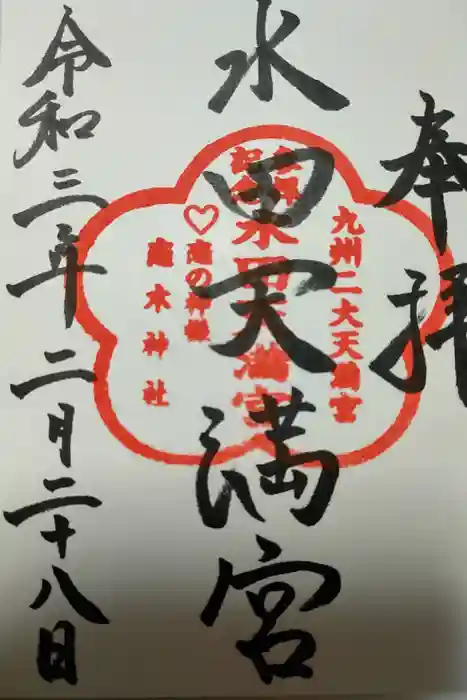 奉拝
水田天満宮
令和三年二月二十八日
九州二大天満宮
参拝記念
水田天満宮
♡恋の神様
恋木神社